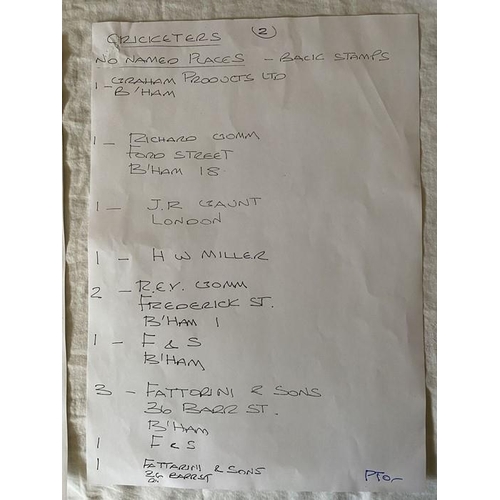 CRICKETERS (2)
NO NAMED PLACES - BACK STAMPS
1 - GRAHAM PRODUCTS LTD
B'HAM
1 - RICHARD GOMM
FORD STREET
B'HAM 18.
1 - J.R GAUNT
LONDON
1 - H W MILLER
2 - R.E.V. GOMM
FREDERICK ST.
B'HAM 1
1 - F & S
B'HAM
3 - FATTORINI & SONS
36 BARR ST.
B'HAM
1 F & S
1 FATTARINI & SONS
BARR ST
PTO-